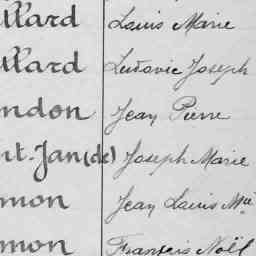 ullard Louis Marie
ullard Ludovic Joseph
ndon Jean Pierre
nt.Jan(de) Joseph Marie
mon Jean Louis Mie
mon François Noël